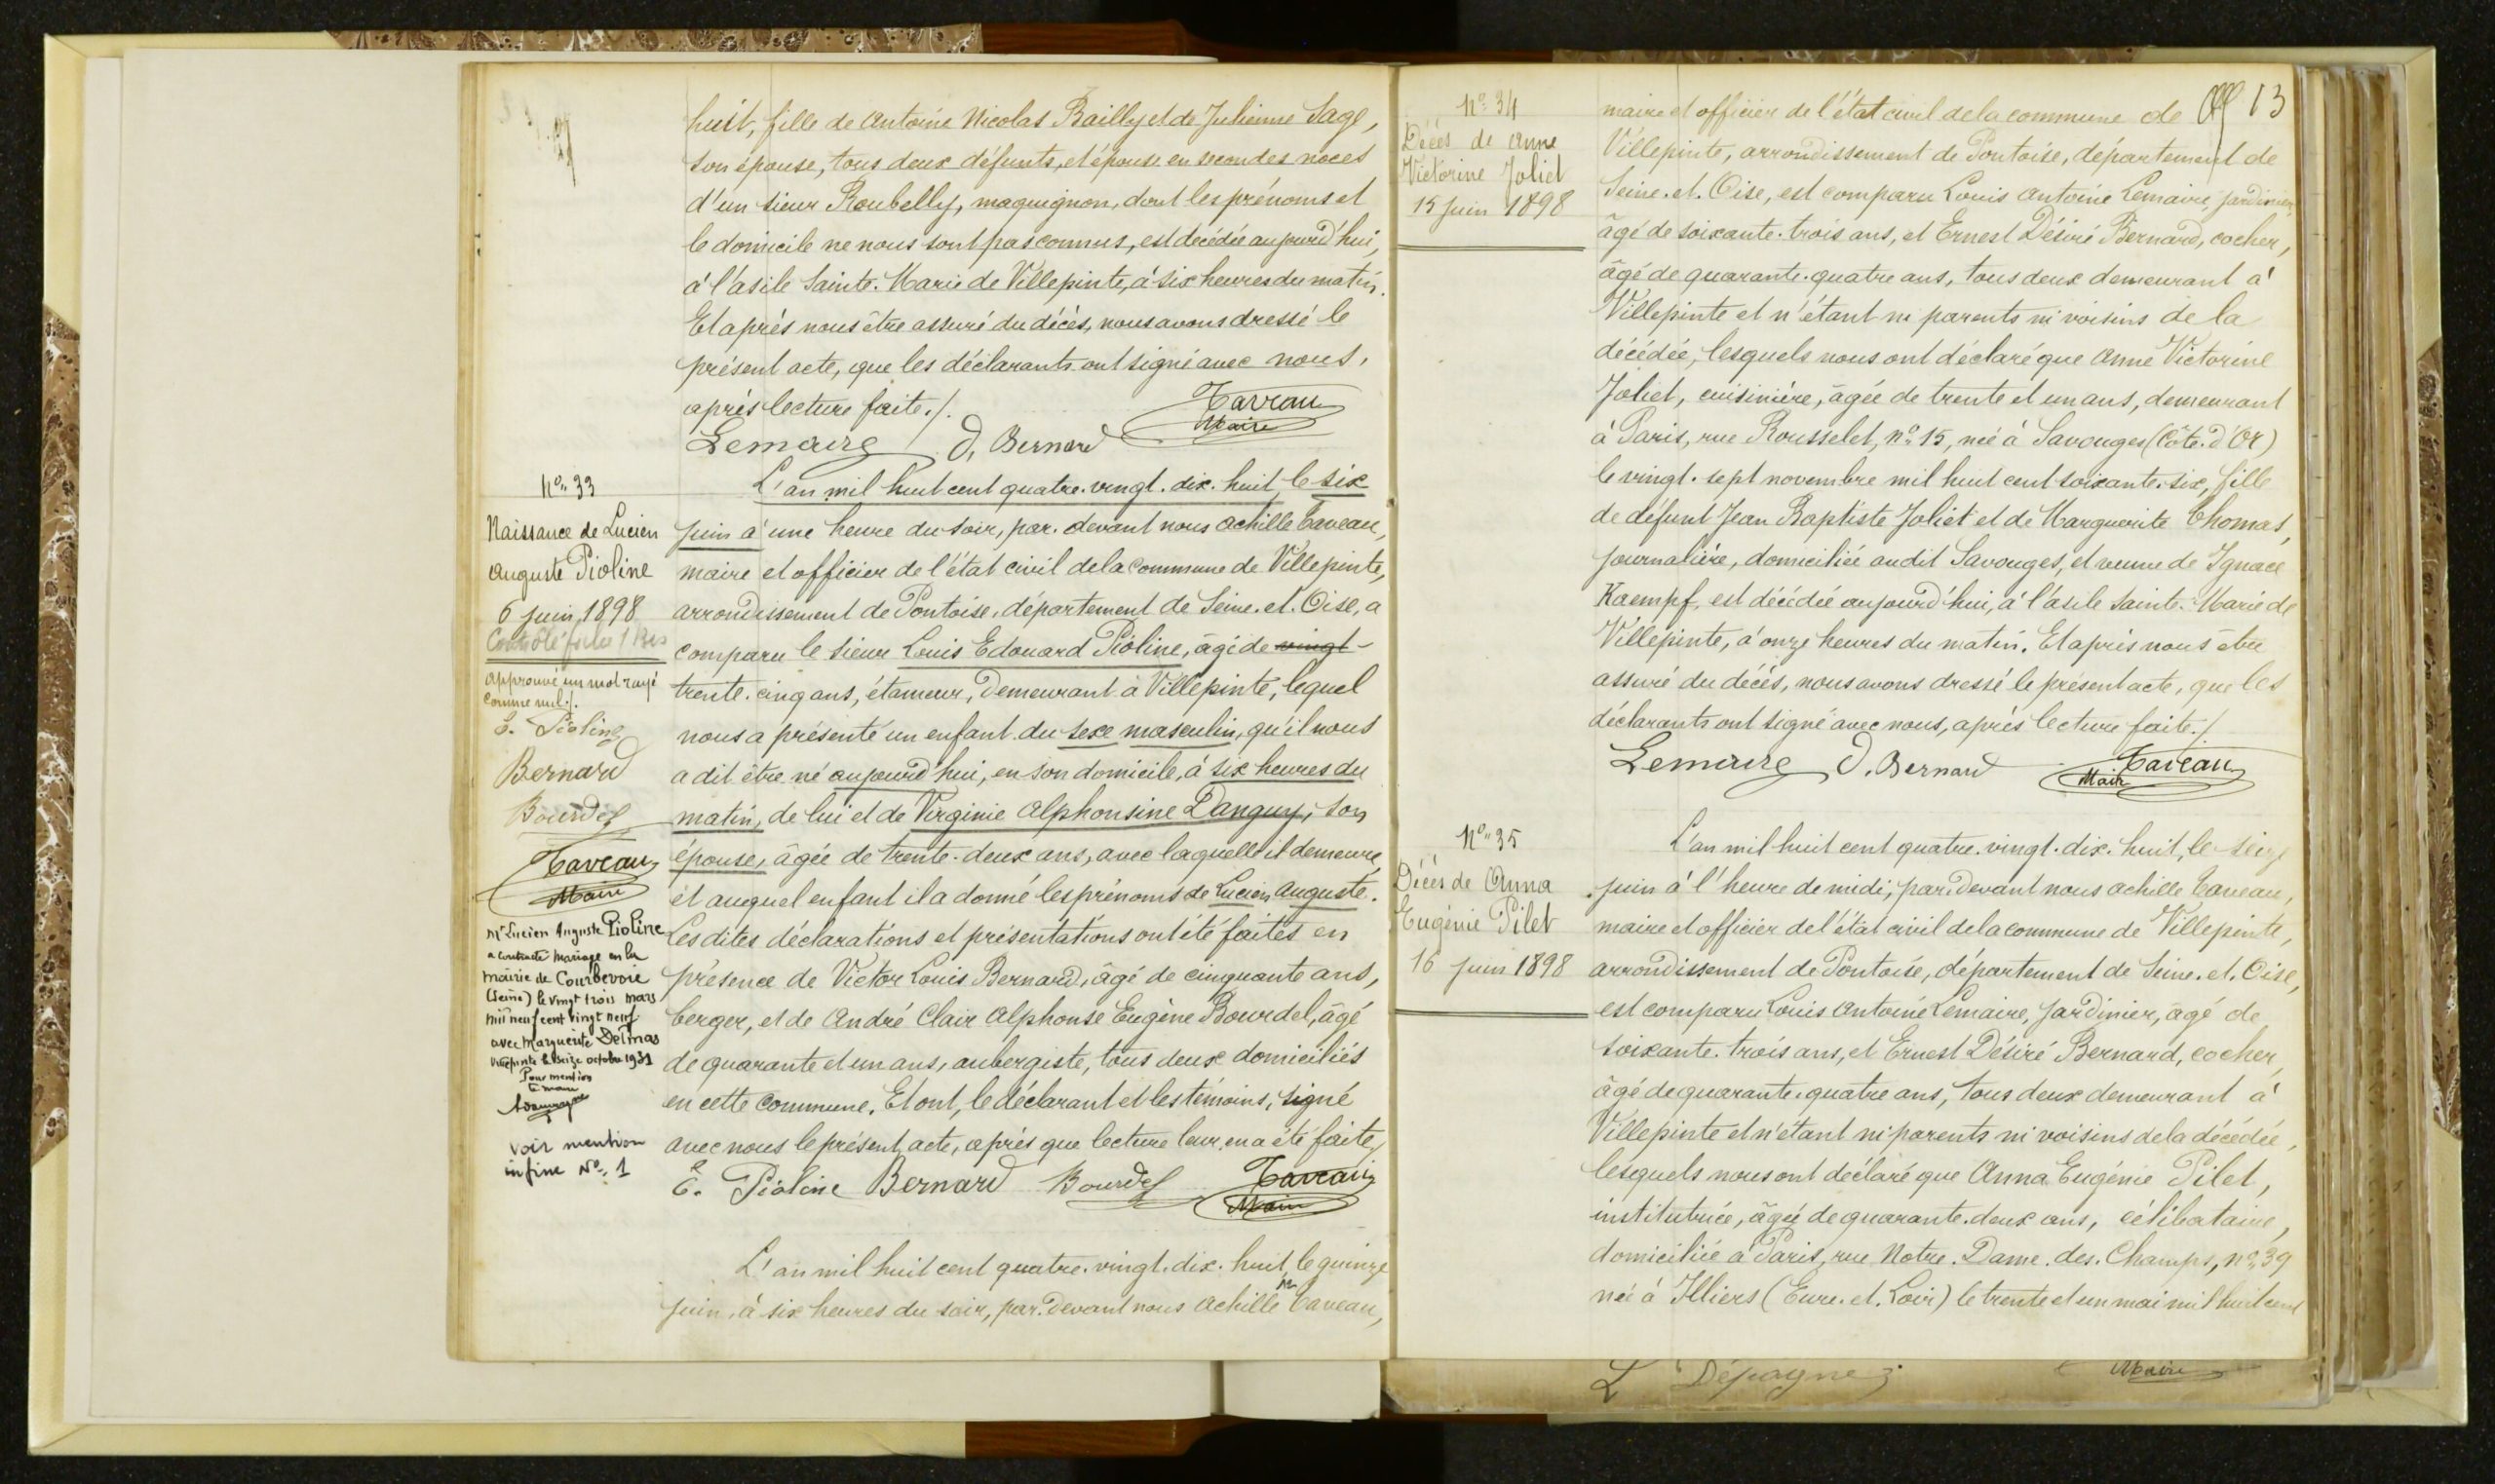 huit, fille de Antoine Nicolas Bailly et de Julienne Sage,
son épouse, tous deux défunts, et épouse en secondes noces
d'un sieur Roubelly, maquignon, dont les prénoms et
le domicile ne nous sont pas connus, est décédée aujourd'hui,
à l'asile Sainte-Marie de Villepinte, à six heures du matin.
Et après nous être assuré du décès, nous avons dressé le
présent acte, que les déclarants ont signé avec nous,
après lecture faite./.
Taveau
Maire
Lemaire D. Bernard
No 33
Naissance de Lucien
Auguste Pioline
6 Juin 1898
Contrôlé
approuvé un mot rayé
comme nul./.
E. Pioline
Bernard
Bourdel
Taveau
Maire
Mr Lucien Auguste Pioline
a contracté mariage en la
mairie de Courbevoie
(Seine) le vingt trois mars
mil neuf cent vingt neuf
avec Marguerite Delmas
Villepinte le seize octobre 1931
Pour mention
Le maire
voir mention
in fine No 1
L'an mil huit cent quatre-vingt-dix-huit, le six
juin à une heure du soir, par-devant nous Achille Taveau,
maire et officier de l'état civil de la commune de Villepinte,
arrondissement de Pontoise, département de Seine-et-Oise, a
comparu le sieur Louis Edouard Pioline, âgé de vingt-
trente-cinq ans, étameur, demeurant à Villepinte, lequel
nous a présenté un enfant du sexe masculin, qu'il nous
a dit être né aujourd'hui, en son domicile, à six heures du
matin, de lui et de Virginie Alphonsine Danguy, son
épouse, âgée de trente-deux ans, avec laquelle il demeure,
et auquel enfant il a donné les prénoms de Lucien Auguste.
Les dites déclarations et présentations ont été faites en
présence de Victor Louis Bernard, âgé de cinquante ans,
berger, et de André Clair Alphonse Eugène Bourdel, âgé
de quarante et un ans, aubergiste, tous deux domiciliés
en cette commune. Et ont, le déclarant et les témoins, signé
avec nous le présent acte, après que lecture leur en a été faite./
E. Pioline Bernard Bourdel Taveau
Maire
L'an mil huit cent quatre-vingt-dix-huit, le quinze
juin, à six heures du soir, par-devant nous Achille Taveau,
13
No 34
Décès de Anne
Victorine Joliet
15 Juin 1898
maire et officier de l'état civil de la commune de
Villepinte, arrondissement de Pontoise, département de
Seine-et-Oise, est comparu Louis Antoine Lemaire, jardinier,
âgé de soixante-trois ans, et Ernest Désiré Bernard, cocher,
âgé de quarante-quatre ans, tous deux demeurant à
Villepinte et n'étant ni parents ni voisins de la
décédée, lesquels nous ont déclaré que Anne Victorine
Joliet, cuisinière, âgée de trente et un ans, demeurant
à Paris, rue Rousselet, no 15, née à Savouges (Côte-d'Or)
le vingt-sept novembre mil huit cent soixante-six, fille
de défunt Jean Baptiste Joliet et de Marguerite Thomas,
journalière, domiciliée audit Savouges, et veuve de Ignace
Kaempf, est décédée aujourd'hui, à l'asile Sainte-Marie de
Villepinte, à onze heures du matin. Et après nous être
assuré du décès, nous avons dressé le présent acte, que les
déclarants ont signé avec nous, après lecture faite./
Lemaire D. Bernard Taveau
Maire
No 35
Décès de Anna
Eugénie Pilet
16 Juin 1898
L'an mil huit cent quatre-vingt-dix-huit, le seize
juin à l'heure de midi, par-devant nous Achille Taveau,
maire et officier de l'état civil de la commune de Villepinte,
arrondissement de Pontoise, département de Seine-et-Oise,
est comparu Louis Antoine Lemaire, jardinier, âgé de
soixante-trois ans, et Ernest Désiré Bernard, cocher,
âgé de quarante-quatre ans, tous deux demeurant à
Villepinte et n'étant ni parents ni voisins de la décédée,
lesquels nous ont déclaré que Anna Eugénie Pilet,
institutrice, âgée de quarante-deux ans, célibataire,
domiciliée à Paris, rue Notre-Dame-des-Champs, no 39
née à Illiers (Eure-et-Loir) le trente et un mai mil huit cent
L Dépagne
Maire